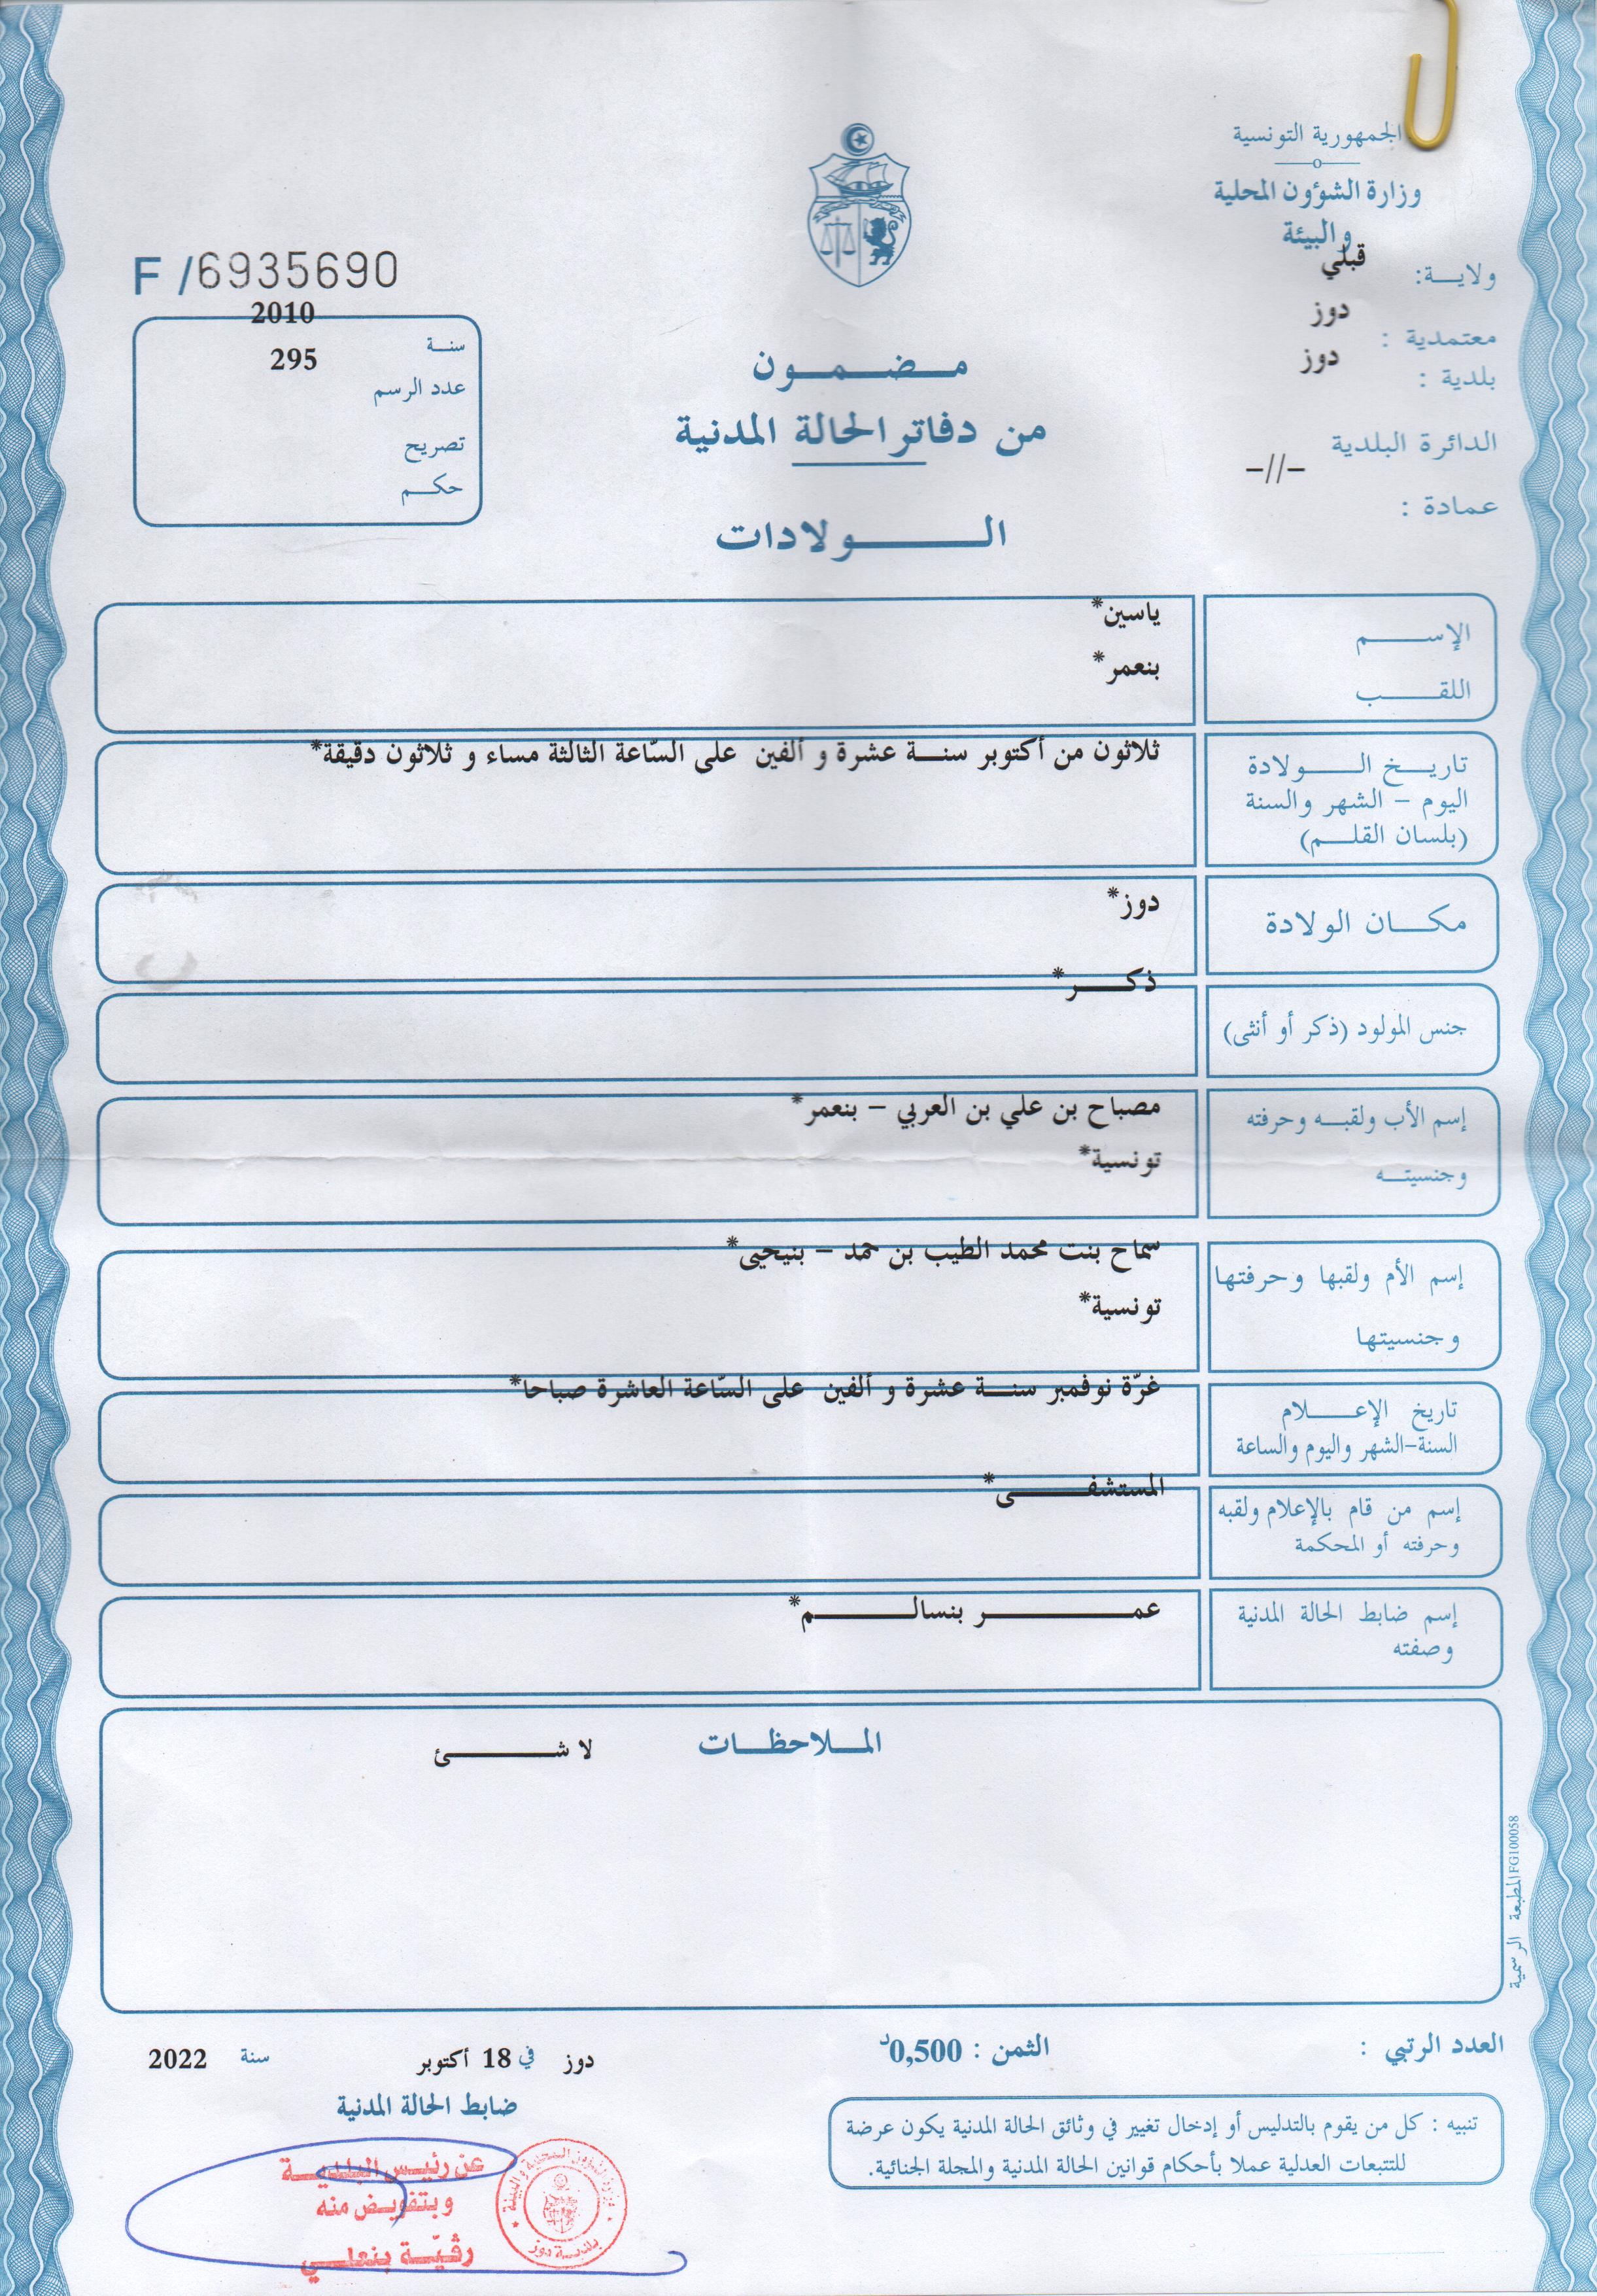 الجمهورية التونسية
وزارة الشؤون المحلية
والبيئة
ولايـــة: قبلي
معتمدية : دوز
بلدية : دوز
الدائرة البلدية
-//-
عمادة :
F /6935690
سنــة 2010
عدد الرسم 295
تصريح
حكــم
مــضــمــون
من دفاتر الحالة المدنية
الــــولادات
الإســــم ياسين*
اللقــــب بنعمر*
تاريــخ الــــولادة
اليوم - الشهر والسنة
(بلسان القلــم)
ثلاثون من أكتوبر سنـــة عشرة و ألفين على السّاعة الثالثة مساء و ثلاثون دقيقة*
مكـــان الولادة دوز*
جنس المولود (ذكر أو أنثى) ذكــــر*
إسم الأب ولقبــه وحرفته مصباح بن علي بن العربي - بنعمر*
وجنسيتــه تونسية*
إسم الأم ولقبها وحرفتها سماح بنت محمد الطيب بن حمد - بنيحيى*
وجنسيتها تونسية*
تاريخ الإعـــلام
السنة-الشهر واليوم والساعة
غرّة نوفمبر سنـــة عشرة و ألفين على السّاعة العاشرة صباحا*
إسم من قام بالإعلام ولقبه
وحرفته أو المحكمة
المستشفـــــى*
إسم ضابط الحالة المدنية
وصفته
عمــــــــر بنسالـــــــم*
المــلاحظــات
لا شـــــئ
المطبعة الرسمية FG100058
العدد الرتبي :
الثمن : 0,500د
دوز في 18 أكتوبر سنة 2022
ضابط الحالة المدنية
تنبيه : كل من يقوم بالتدليس أو إدخال تغيير في وثائق الحالة المدنية يكون عرضة
للتتبعات العدلية عملا بأحكام قوانين الحالة المدنية والمجلة الجنائية.
عن رئيس البلديـــة
وبتفويض منه
رقيّــة بنعلــي
بلدية دوز